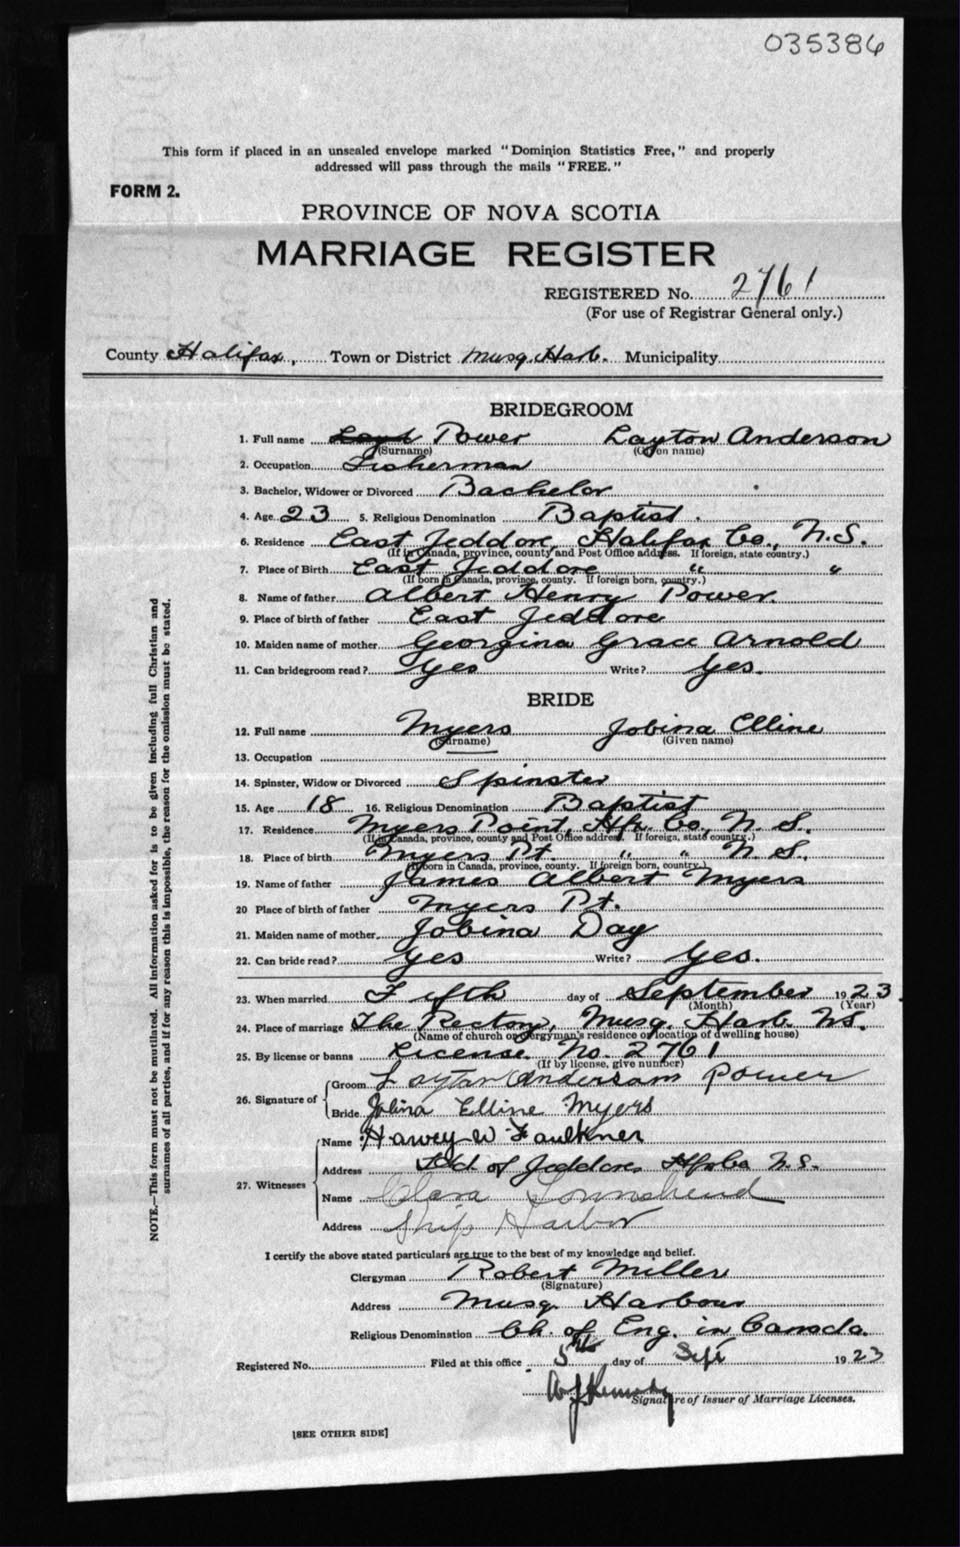 035386
This form if placed in an unsealed envelope marked "Dominion Statistics Free," and properly
addressed will pass through the mails "FREE."
FORM 2.
PROVINCE OF NOVA SCOTIA
MARRIAGE REGISTER
REGISTERED No. 2761
(For use of Registrar General only.)
County Halifax, Town or District Musq. Harb. Municipality
BRIDEGROOM
1. Full name Power Layton Anderson
(Surname) (Given name)
2. Occupation Fisherman
3. Bachelor, Widower or Divorced Bachelor
4. Age 23 5. Religious Denomination Baptist.
6. Residence East Jeddore, Halifax Co., N.S.
(If in Canada, province, county and Post Office address. If foreign, state country.)
7. Place of Birth East Jeddore " "
(If born in Canada, province, county. If foreign born, country.)
8. Name of father Albert Henry Power.
9. Place of birth of father East Jeddore
10. Maiden name of mother Georgina Grace Arnold
11. Can bridegroom read? Yes Write? Yes.
BRIDE
12. Full name Myers Jobina Elline
(Surname) (Given name)
13. Occupation
14. Spinster, Widow or Divorced Spinster
15. Age 18 16. Religious Denomination Baptist
17. Residence Myers Point, Hfx. Co., N.S.
(If in Canada, province, county and Post Office address. If foreign, state country.)
18. Place of birth Myers Pt. " " N.S.
(If born in Canada, province, county. If foreign born, country.)
19. Name of father James Albert Myers
20 Place of birth of father Myers Pt.
21. Maiden name of mother Jobina Day
22. Can bride read? Yes Write? Yes.
23. When married Fifth day of September 1923.
(Month) (Year)
24. Place of marriage The Rectory, Musq. Harb. N.S.
(Name of church or clergyman's residence or location of dwelling house)
25. By license or banns License. No. 2761
(If by license, give number)
26. Signature of Groom Laytan Andersam Power
Bride Jobina Elline Myers
27. Witnesses Name Harvey W Faulkner
Address Hd of Jeddore, Hfx Co N.S.
Name Clara Townshend
Address Ship Harbor
I certify the above stated particulars are true to the best of my knowledge and belief.
Clergyman Robert Miller
(Signature)
Address Musq. Harbour
Religious Denomination Ch. of Eng. in Canada.
Registered No. Filed at this office 5th day of Sept 1923
Kennedy
Signature of Issuer of Marriage Licenses.
[SEE OTHER SIDE]
NOTE.—This form must not be mutilated. All information asked for is to be given including full Christian and
surnames of all parties, and if for any reason this is impossible, the reason for the omission must be stated.